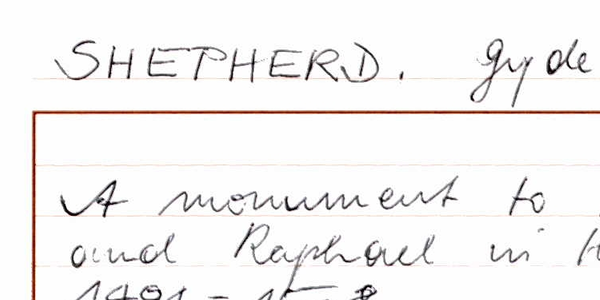 SHEPHERD. Gyde
A monument to
and Raphael in